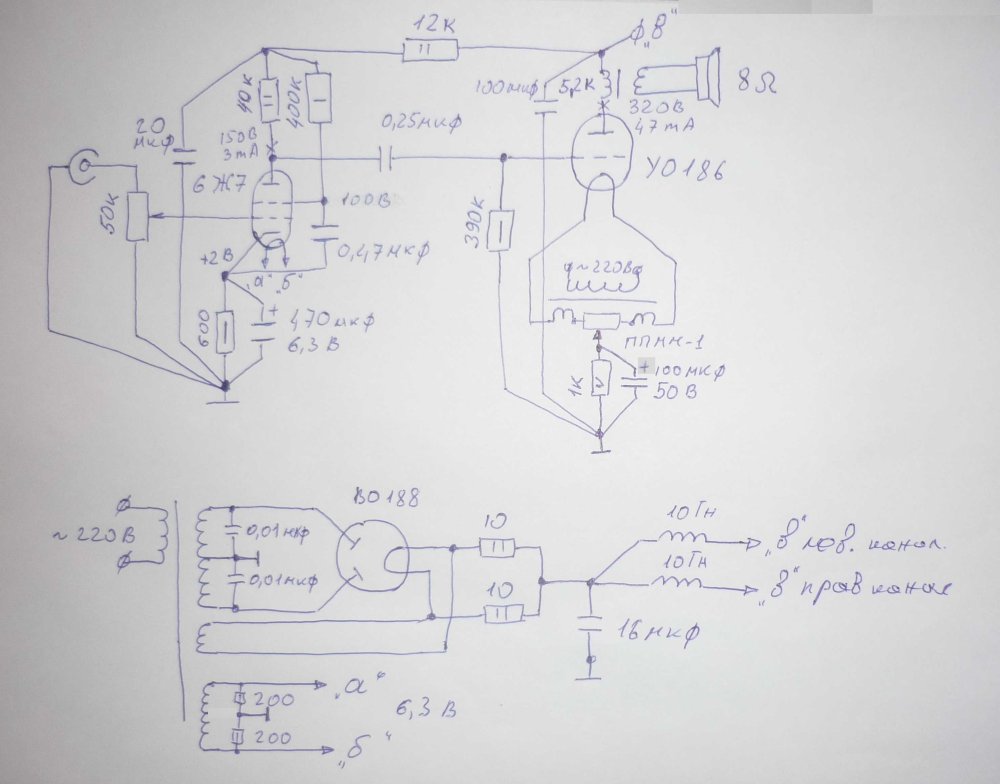 12К
ф„В"
40К
400К
100мкф
5,2К
8Ω
320В
47mA
20
мкф
150В
3mA
0,25мкф
6Ж7
УО186
50К
100В
390К
+2В
0,47мкф
„а" „б"
ф~220Вф
600
+
470мкф
6,3В
ППМН-1
1К
+
100мкф
50В
ВО188
~220В
0,01мкф
0,01мкф
10
10
10Гн
„В" лев. канал.
10Гн
„В" прав канал
16мкф
„а"
200
6,3В
200
„б"